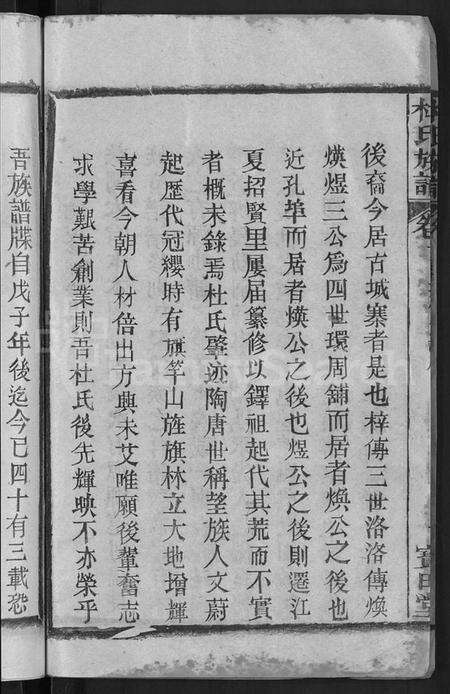 杜氏族譜
卷
寶田堂
後裔今居古城寨者是也梓傳三世洛洛傳煥
煐煜三公爲四世環周舖而居者煥公之後也
近孔埠而居者煐公之後也煜公之後則遷江
夏招賢里屢屆纂修以鐸祖起代其荒而不實
者概未錄焉杜氏肇迹陶唐世稱望族人文蔚
起歷代冠纓時有旗竿山旌旗林立大地增輝
喜看今朝人材倍出方興未艾唯願後輩奮志
求學艱苦創業則吾杜氏後先輝映不亦榮乎
吾族譜牒自戊子年後迄今已四十有三載恐